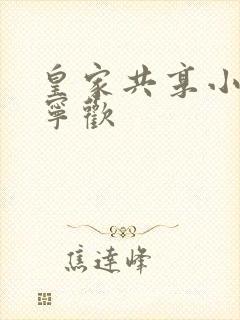 皇家共享小
寧歡
焦達峰